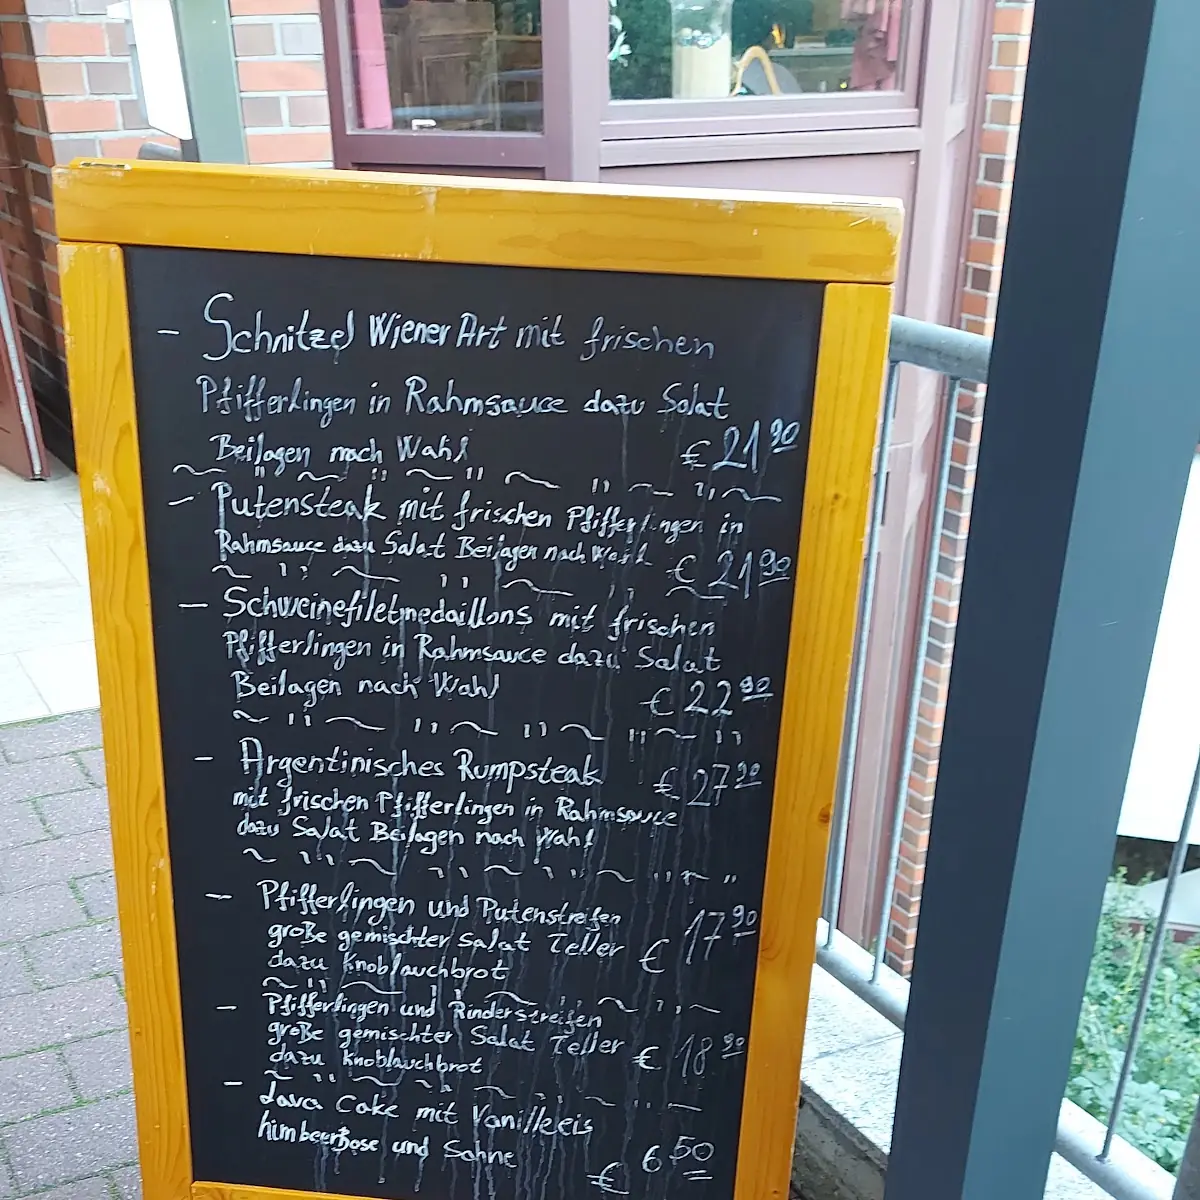 - Schnitzel Wiener Art mit frischen
Pfifferlingen in Rahmsauce dazu Salat
Beilagen nach Wahl € 21 90
- Putensteak mit frischen Pfifferlingen in
Rahmsauce dazu Salat Beilagen nach Wahl € 21 90
- Schweinefiletmedaillons mit frischen
Pfifferlingen in Rahmsauce dazu Salat
Beilagen nach Wahl € 22 90
- Argentinisches Rumpsteak € 27 90
mit frischen Pfifferlingen in Rahmsauce
dazu Salat Beilagen nach Wahl
- Pfifferlingen und Putenstreifen
große gemischter Salat Teller € 17 90
dazu Knoblauchbrot
- Pfifferlingen und Rinderstreifen
große gemischter Salat Teller € 18 90
dazu Knoblauchbrot
- Lava Cake mit Vanilleeis
himbeerßose und Sahne € 6 50